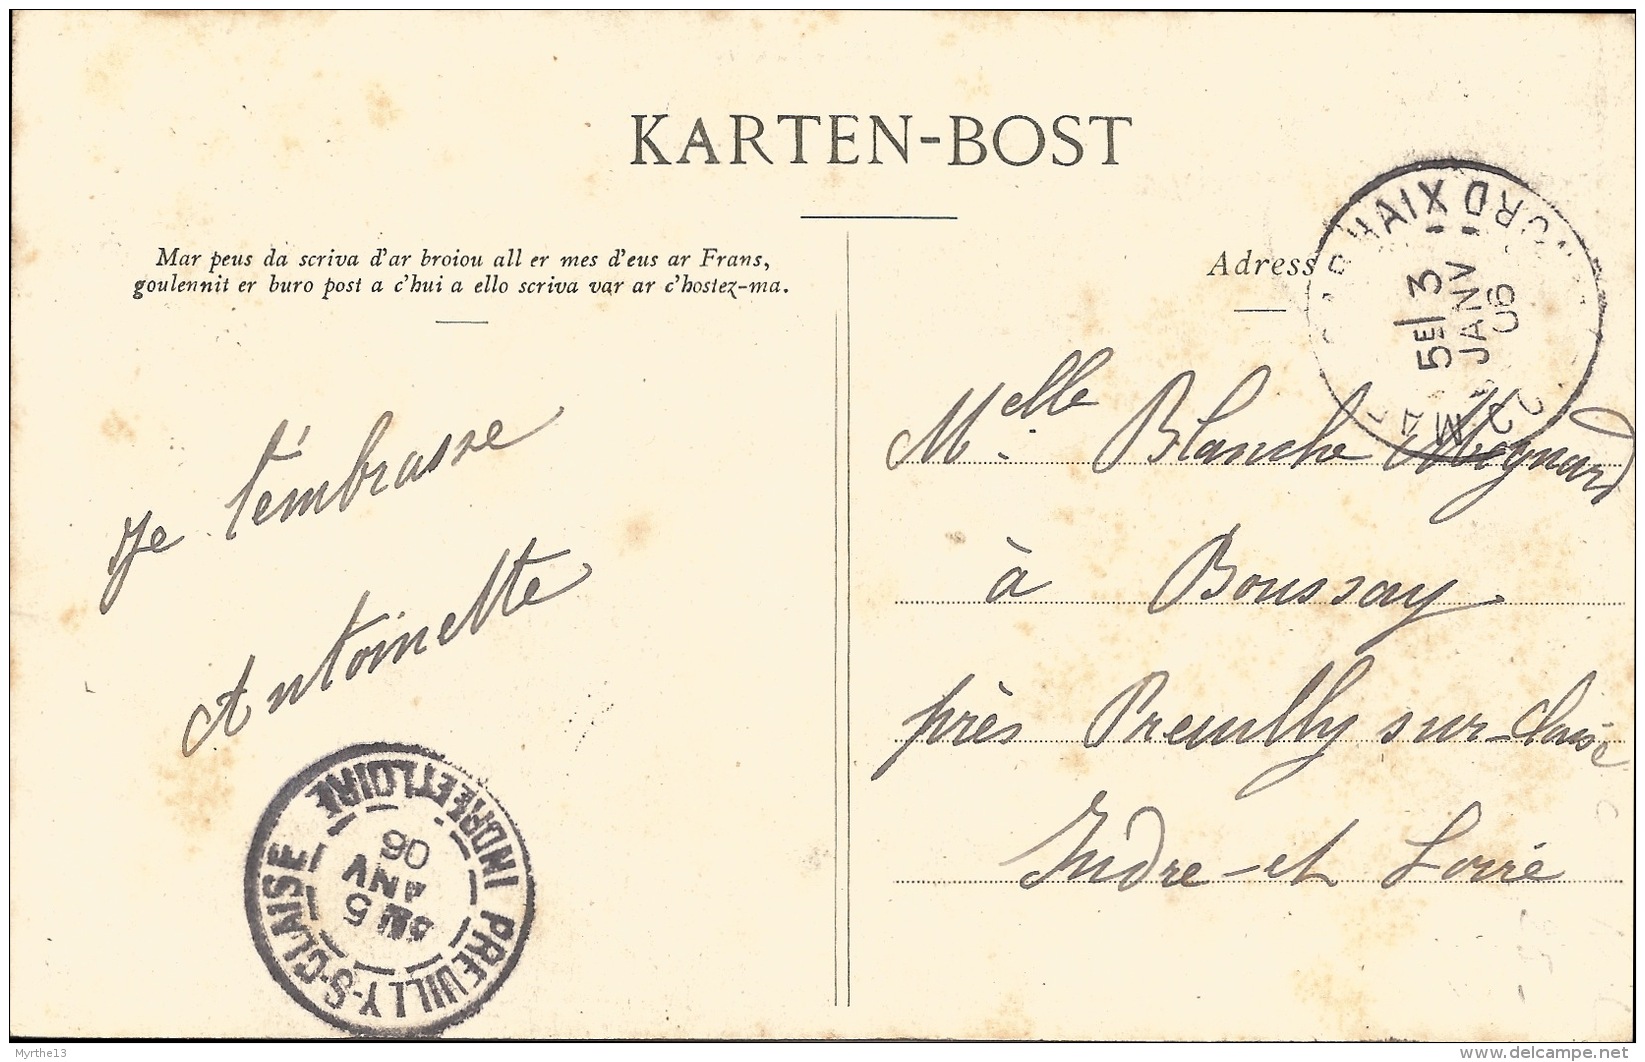 KARTEN-BOST
Mar peus da scriva d'ar broiou all er mes d'eus ar Frans,
goulennit er buro post a c'hui a ello scriva var ar c'hostez-ma.
Adress
5E 3
JANV
06
Je t'embrasse
Antoinette
Melle Blanche
à Boussay
près Preuilly sur-Claise
Indre-et Loire
PREUILLY-S-CLAISE
INDRE ET LOIRE
5
JANV
06
Myrthe13
www.delcampe.net